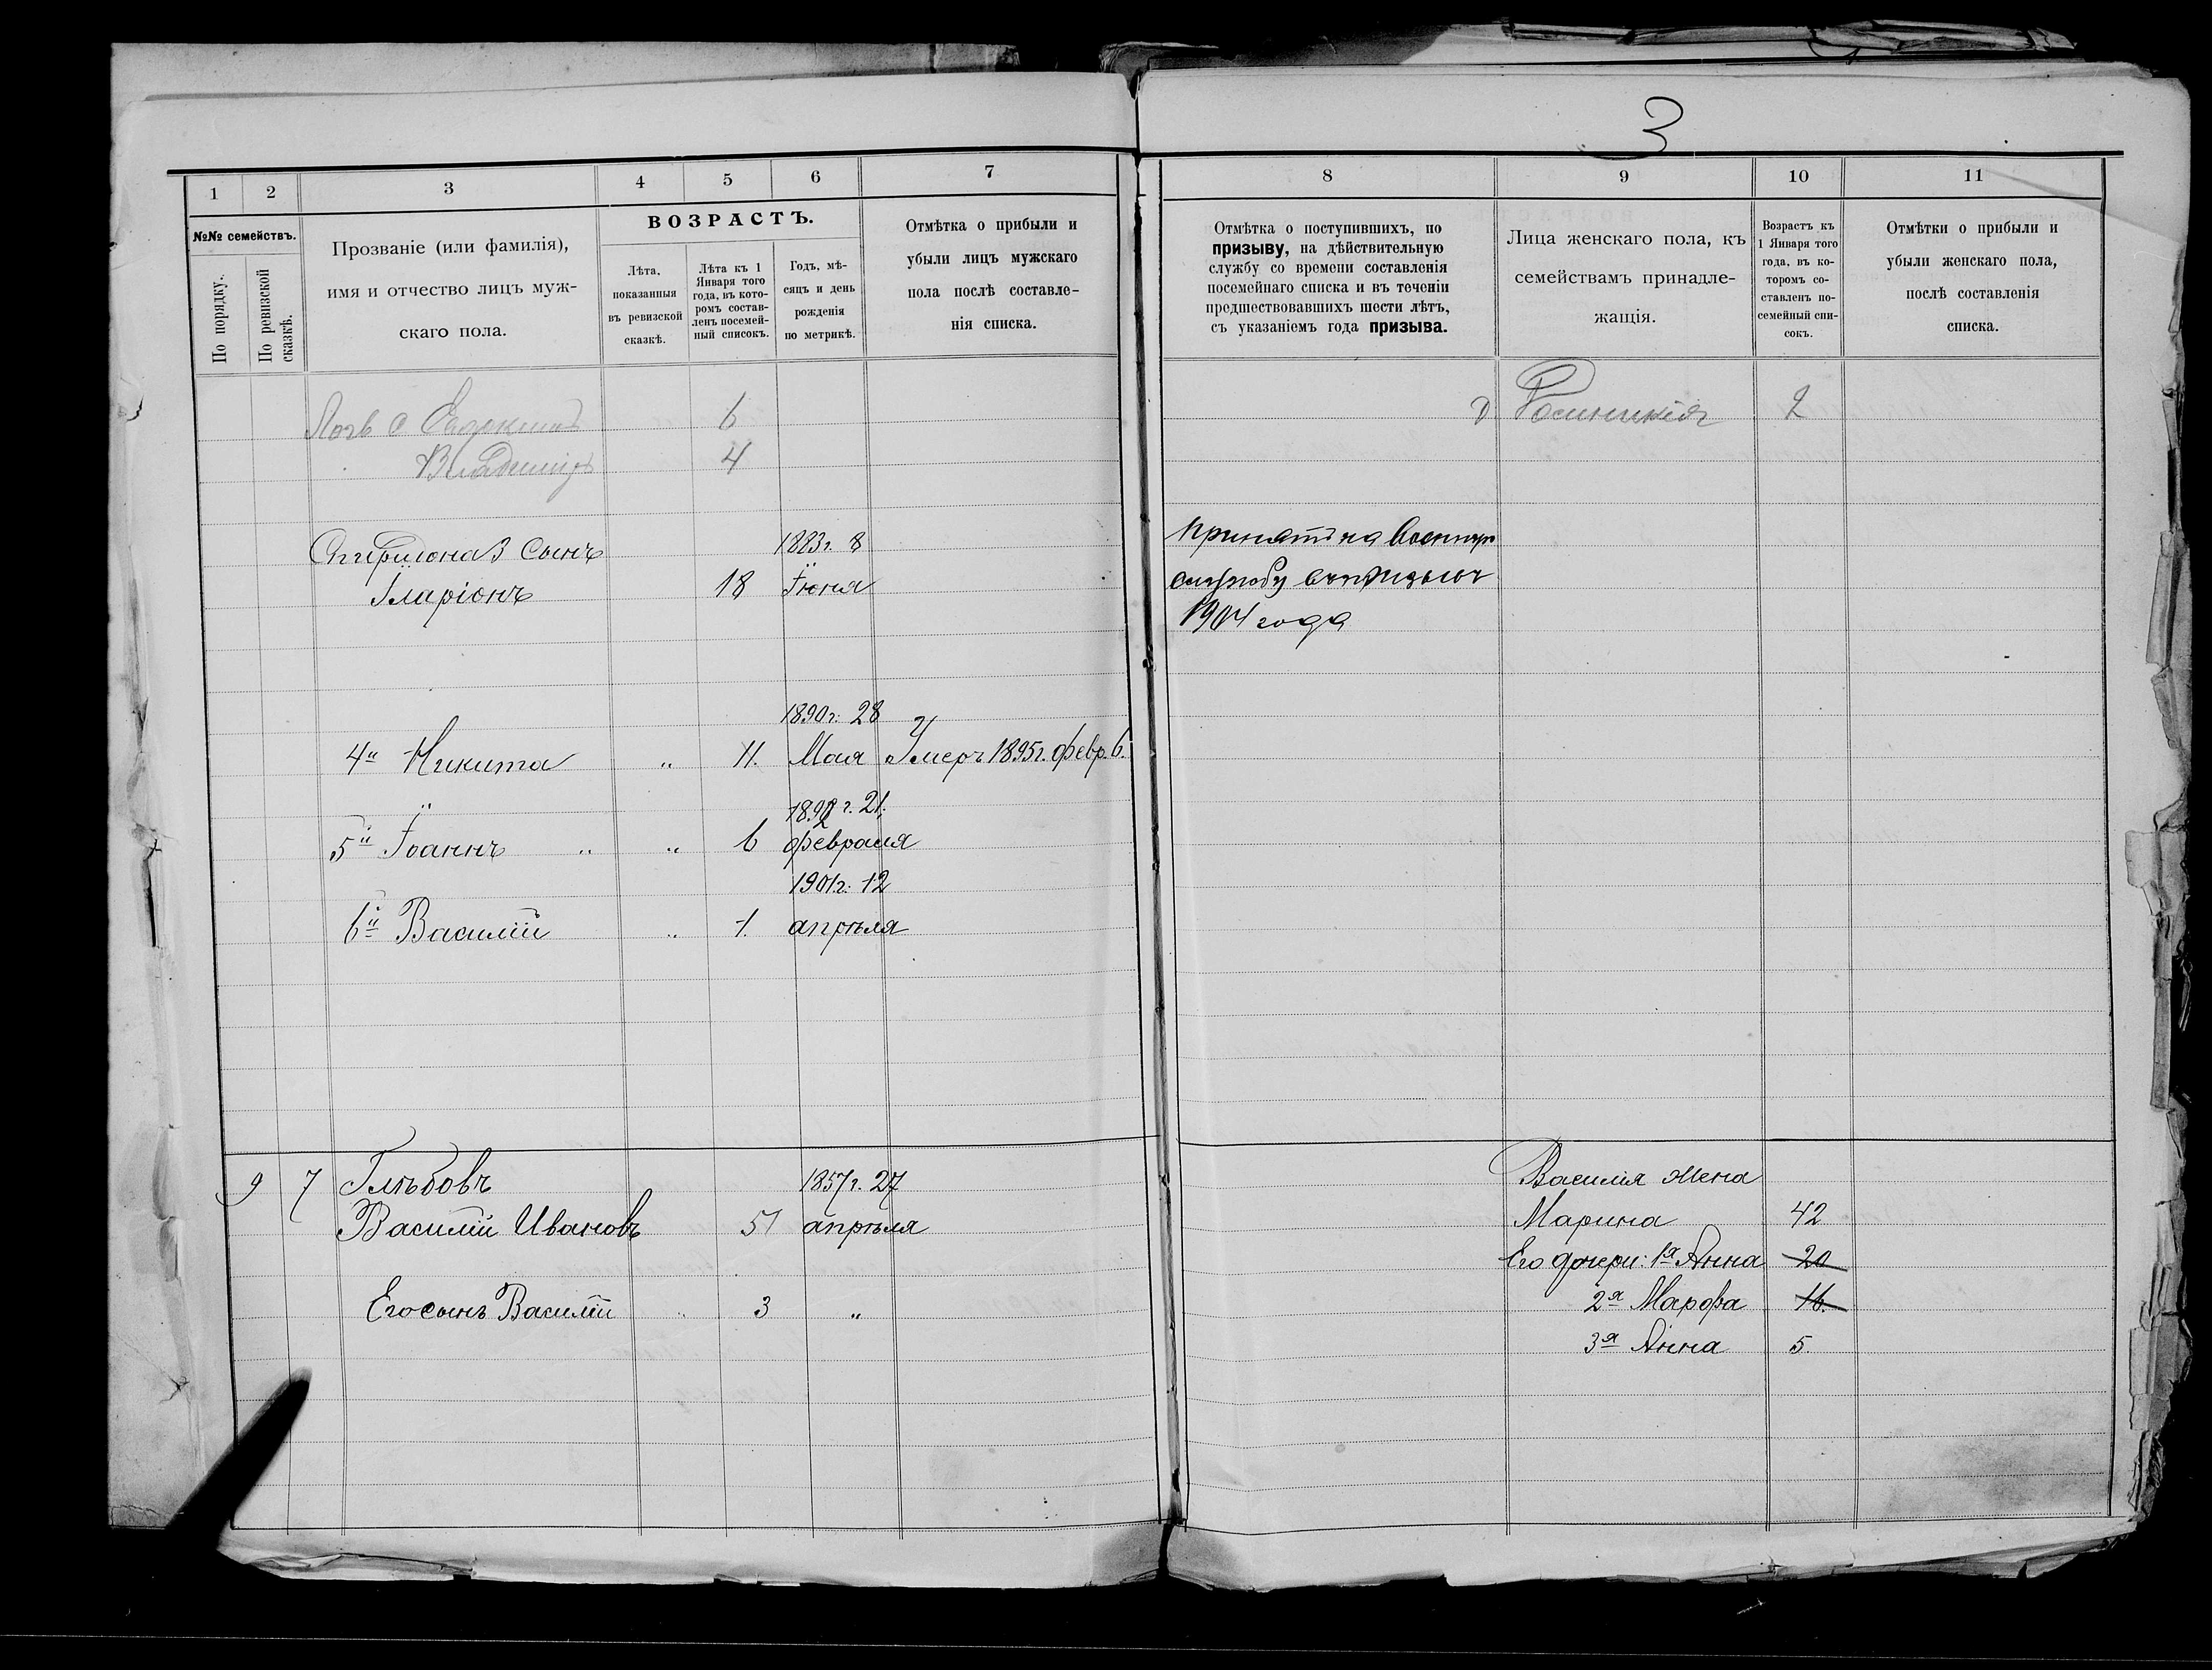 3
1 2 3 4 5 6 7
№№ семействъ.
По порядку.
По ревизской сказкѣ.
Прозваніе (или фамилія),
имя и отчество лицъ муж-
скаго пола.
ВОЗРАСТЪ.
Лѣта,
показанныя
въ ревизской
сказкѣ.
Лѣта къ 1
Января того
года, въ кото-
ромъ состав-
ленъ посемей-
ный списокъ.
Годъ, мѣ-
сяцъ и день
рожденія
по метрикѣ.
Отмѣтка о прибыли и
убыли лицъ мужскаго
пола послѣ составле-
нія списка.
6
Владиміръ 4
3 Сынъ 1883г. 8
Іларіонъ 18 Іюня
1890г. 28
4й Никита " 11. Мая Умеръ 1895г. февр. 6.
г. 21.
5й Іоаннъ " " 6 февраля
1901г. 12
6й Василій " 1. апрѣля
9 7 Глѣбовъ 1857г. 27
Василій Ивановъ 51 апрѣля
Его сынъ Василій " 3 "
8 9 10 11
Отмѣтка о поступившихъ, по
призыву, на дѣйствительную
службу со времени составленія
посемейнаго списка и въ теченіи
предшествовавшихъ шести лѣтъ,
съ указаніемъ года призыва.
Лица женскаго пола, къ
семействамъ принадле-
жащія.
Возрастъ къ
1 Января того
года, въ ко-
торомъ со-
ставленъ по-
семейный спи-
сокъ.
Отмѣтки о прибыли и
убыли женскаго пола,
послѣ составленія
списка.
2
Принятъ на военную
службу въ призывъ
1904 года
Василія жена
Марина 42
Его дочери: 1я Анна 20
2я Марфа 16.
3я Анна 5.